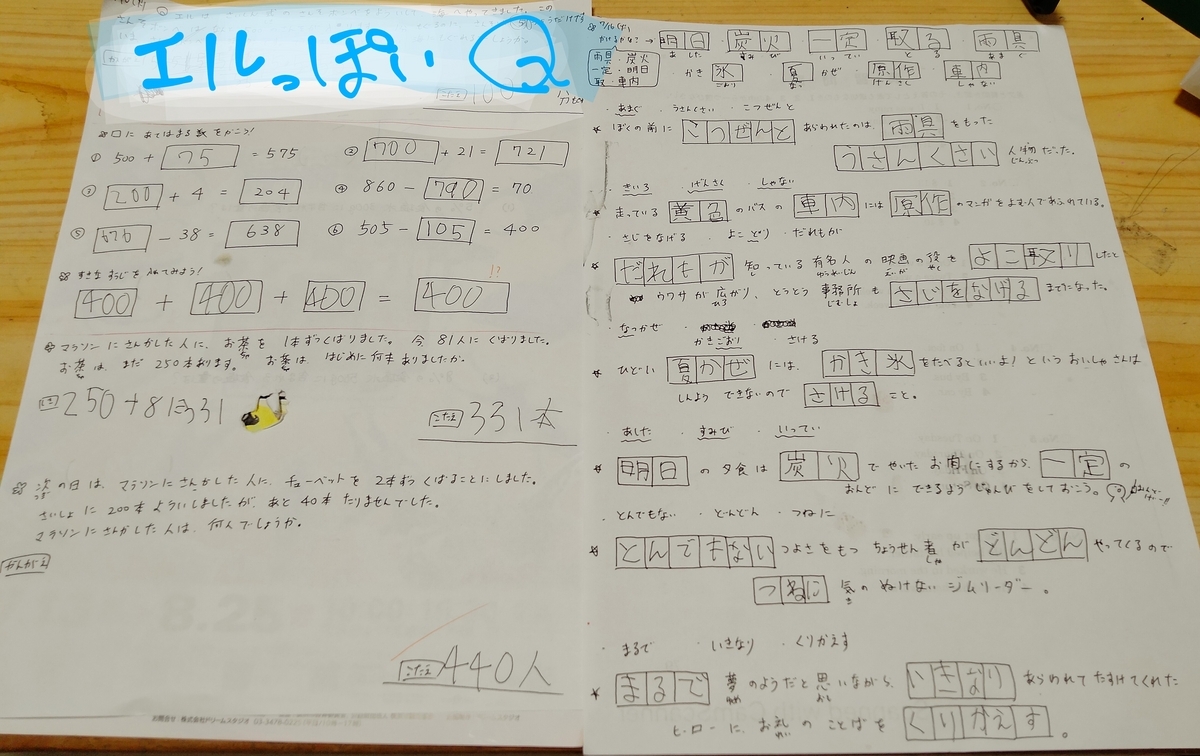 エルっぽい
こたえ
分
□に あてはまる 数 をかこう!
① 500 + 75 = 575
② 700 + 21 = 721
③ 200 + 4 = 204
④ 860 - 790 = 70
⑤ 676 - 38 = 638
⑥ 505 - 105 = 400
すきな すうじを 入れてみよう!
400 + 400 + 400 = 400
!?
マラソン に さんかした人に、お茶を 1本ずつくばりました。今 81人に くばりました。
お茶は、まだ 250本あります。お茶は はじめに 何本 ありましたか。
しき 250+81=331
こたえ 331本
次の日は、マラソンに さんかした人に、チューペットを 2本ずつくばることにしました。
さいしょに 200本 よういしましたが、あと 40本 たりませんでした。
マラソンに さんかした人は、何人でしょうか。
かんがえ
こたえ 440人
お問合せ:株式会社ドリームスタジオ
かけるかな? → 明日・炭火・一定・取る・雨具
あした すみび いってい とる あまぐ
雨具・炭火
一定・明日
取・車内
かき氷・夏かぜ・原作・車内
こおり なつ げんさく しゃない
・あまぐ ・うさんくさい ・こつぜんと
ぼくの前に こつぜんと あらわれたのは、雨具 をもった
うさんくさい 人物だった。
じんぶつ
・きいろ ・げんさく ・しゃない
走っている 黄色 のバスの 車内 には 原作 のマンガをよむ人であふれている。
・さじをなげる ・よこどり ・だれもが
だれもが 知っている 有名人 の 映画の役を よこ取り したと
ゆうめいじん えいが やく
ウワサが 広がり、とうとう 事務所も さじをなげる までになった。
ひろ じむしょ
・なつかぜ
・かきごおり ・さける
ひどい 夏かぜ には、かき氷 をたべるといいよ! という おいしゃさんは
しんよう できないので さける こと。
・あした ・すみび ・いってい
明日 の 夕食は 炭火 でやいた お肉 にするから、一定 の
おんど に できるよう じゅんび をしておこう。
・とんでもない ・どんどん ・つねに
とんでもない つよさをもつ ちょうせん者 が どんどん やってくるので
しゃ
つねに 気の ぬけない ジムリーダー。
き
・まるで ・いきなり ・くりかえす
まるで 夢 のようだと 思いながら、いきなり あらわれて たすけてくれた
ゆめ おも
ヒーローに、お礼 のことばを くりかえす。
れい